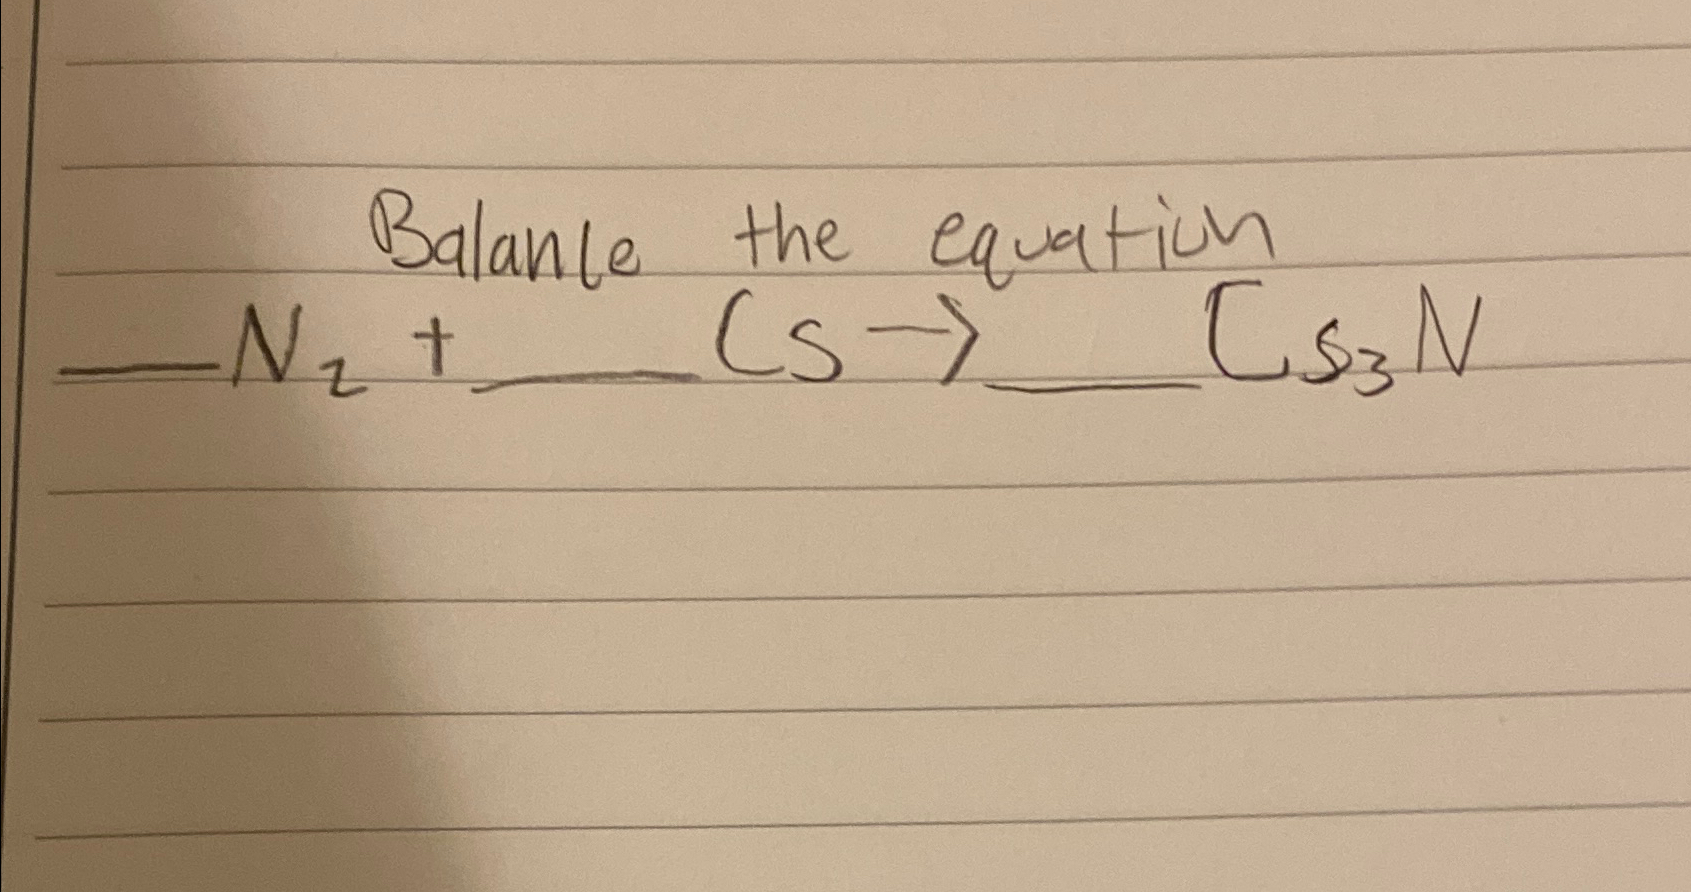 Balance the equation
__N₂ + ___Cs → ___Cs₃N